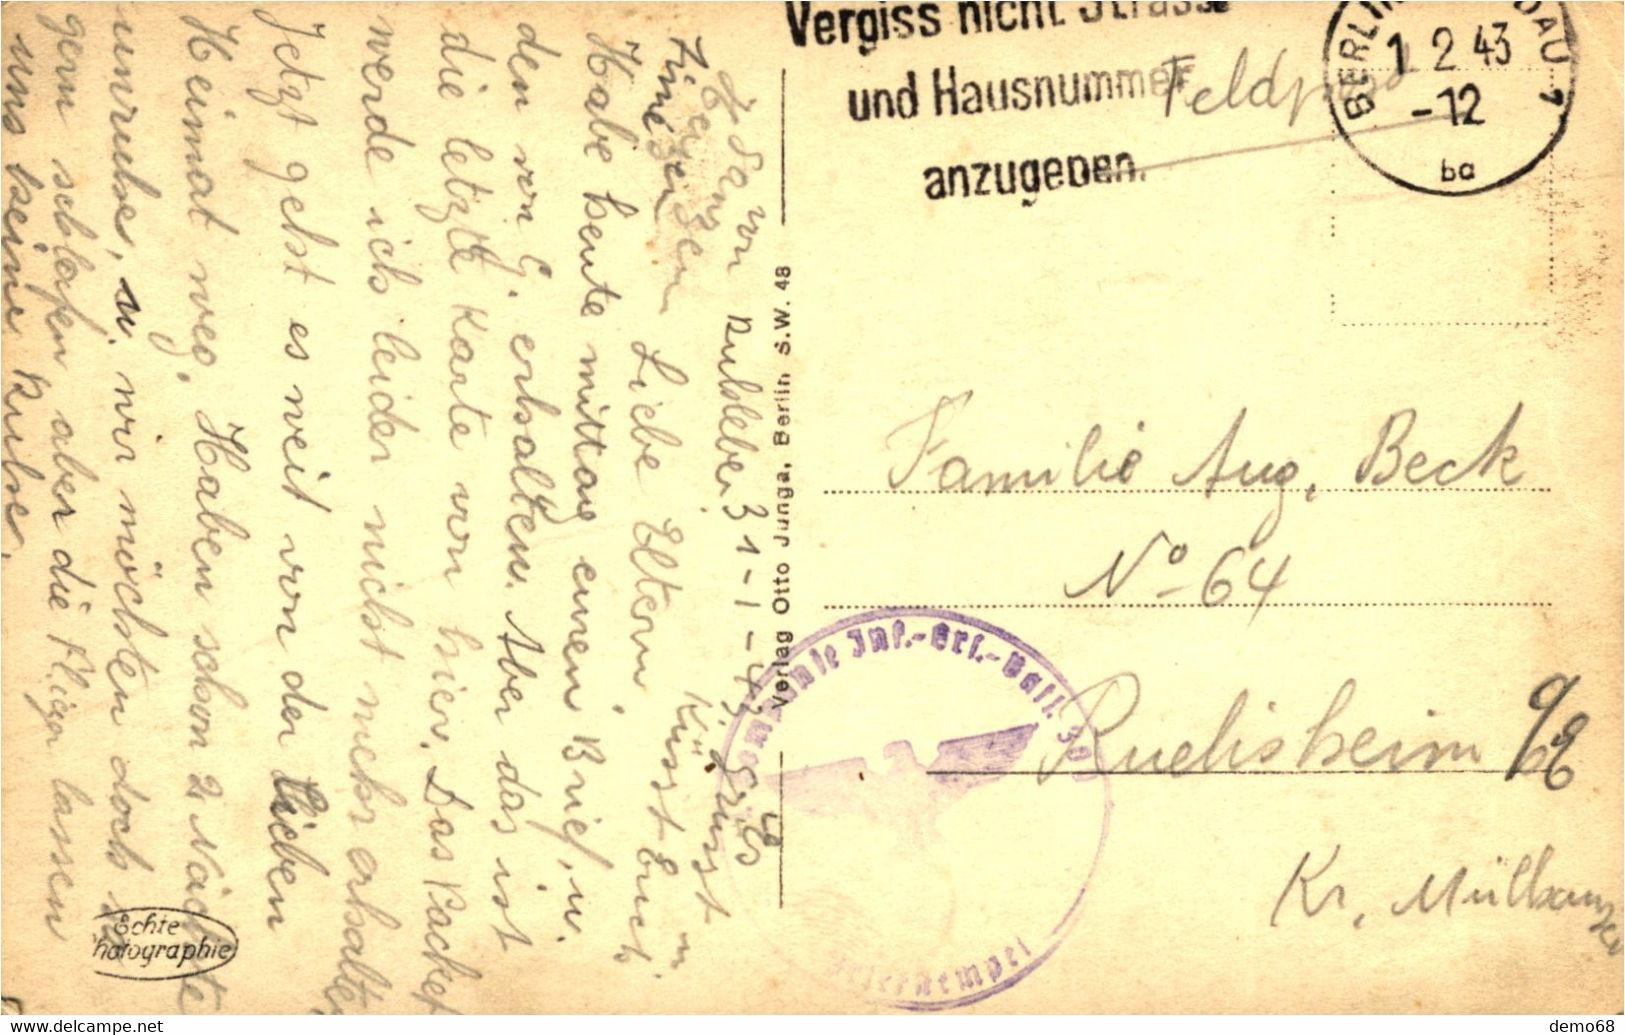 Ruhleben 31-1-43
Liebe Eltern.
Habe heute mittag einen Brief, u.
den von G. erhalten. Aber das ist
die letzte Karte von hier. Das Packet
werde ich leider nicht mehr erhalten
Jetzt geht es weit von der lieben
Heimat weg. Haben schon 2 Nächte
unruhe, u. wir möchten doch so
gern schlafen aber die Flieger lassen
uns keine Ruhe.
Grüsst
Küsst Euch
Verlag Otto Junga, Berlin S.W. 48
Echte
Photographie
Vergiss nicht Strasse
und Hausnummer
anzugeben.
Feldpost
BERLIN
1 2 43
-12
ba
Familie Aug. Beck
No 64
Ruelisheim O/E
Kr. Mülhausen
Inf.-Ers.-Batl.
demo68
www.delcampe.net